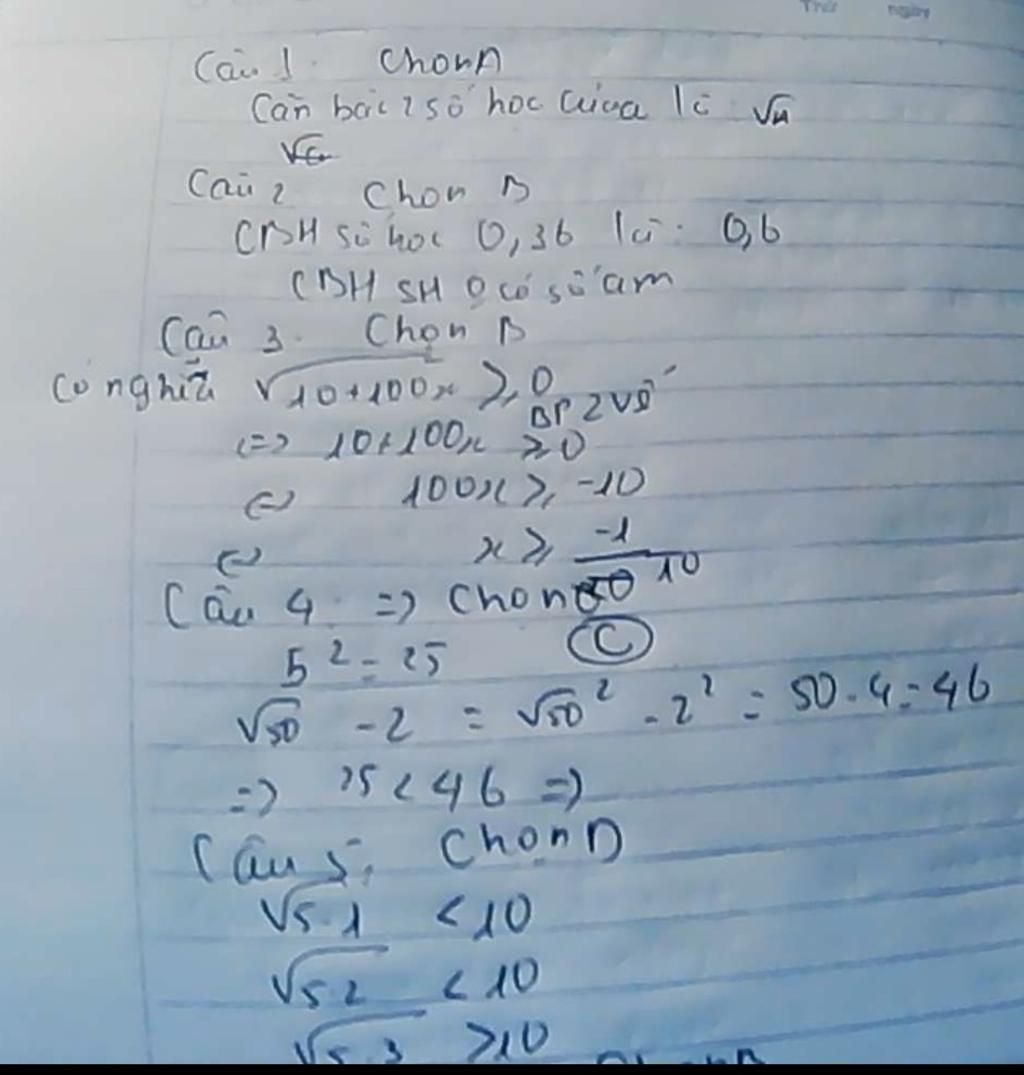 Thứ ngày
Câu 1. Chọn A
Căn bậc 2 số học của là √a
Câu 2 Chọn B
CBH số học 0,36 là: 0,6
CBH SH 0 có số âm
Câu 3. Chọn B
Có nghĩa √10+100x ≥ 0
BP 2 vế
<=> 10+100x ≥ 0
<=> 100x ≥ -10
<=> x ≥ -1/10
Câu 4: => Chọn
C
5² = 25
√50 - 2 = √50² - 2² = 50-4=46
=> 25 < 46 =>
Câu 5: Chọn D
√5.1 < 10
√5 2 < 10
√5.3 >10